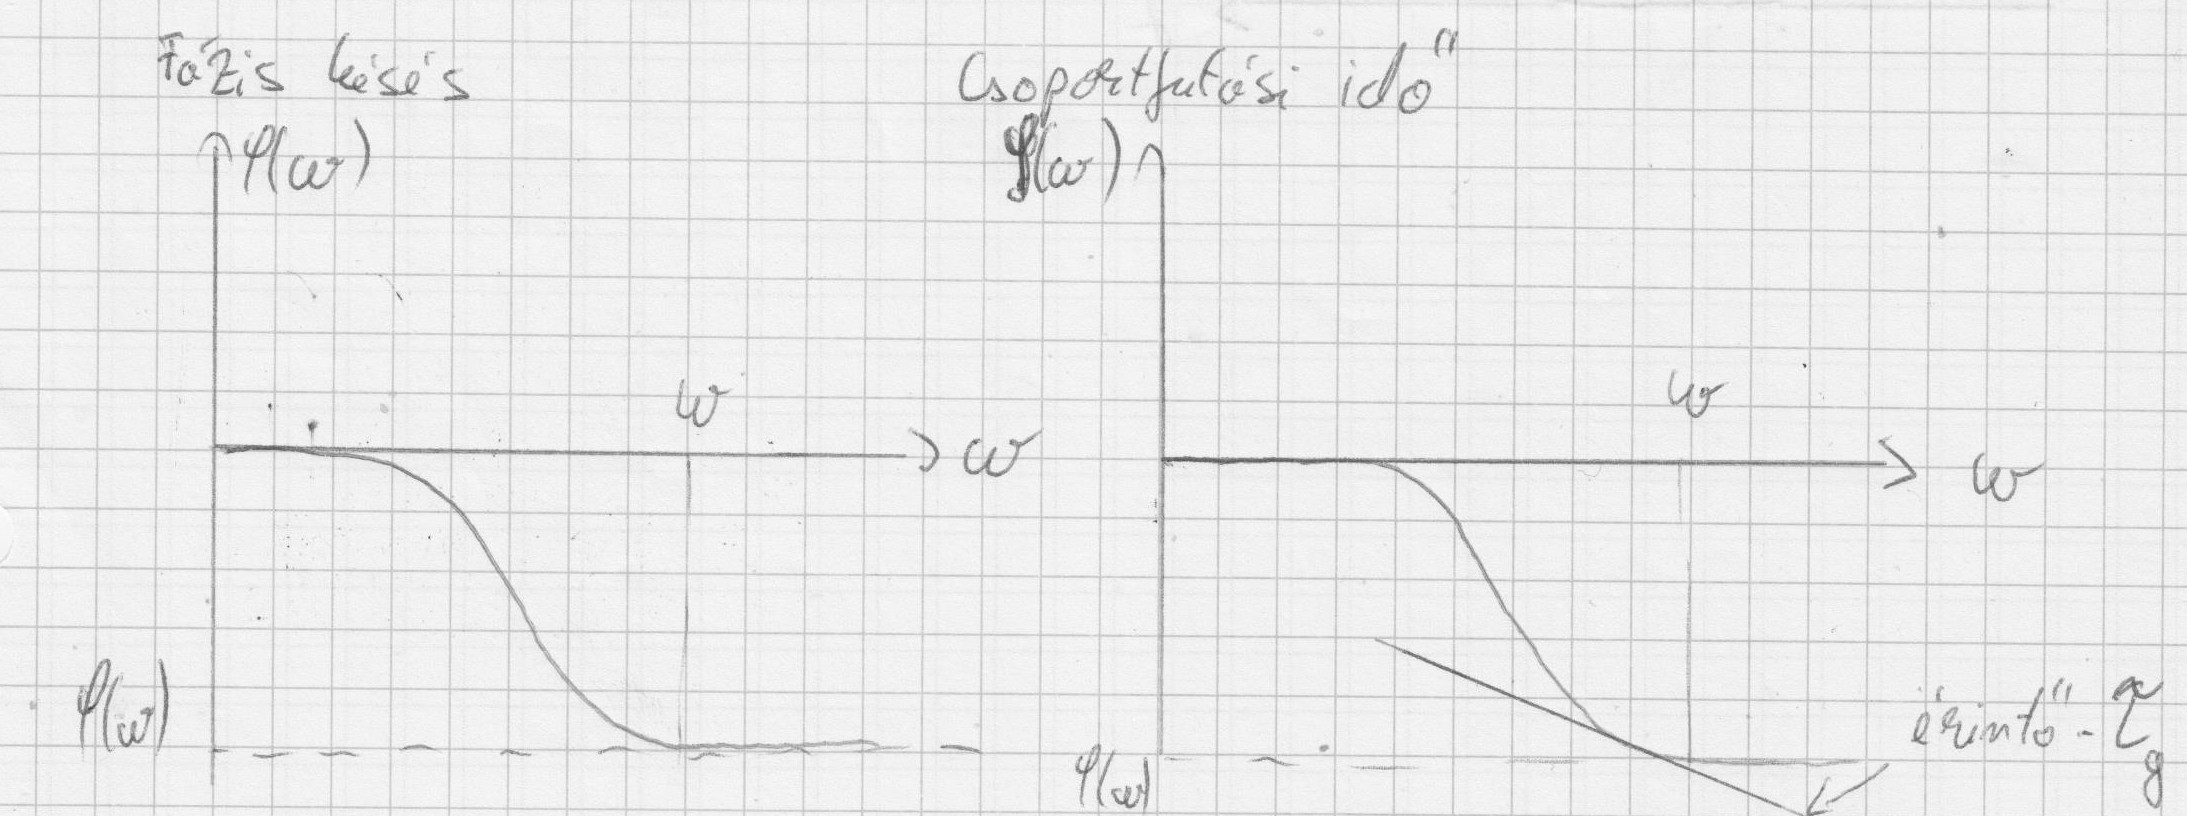 Fázis késés
φ(ω)
ω
ω
φ(ω)
Csoportfutási idő
φ(ω)
ω
ω
φ(ω)
érintő - τg